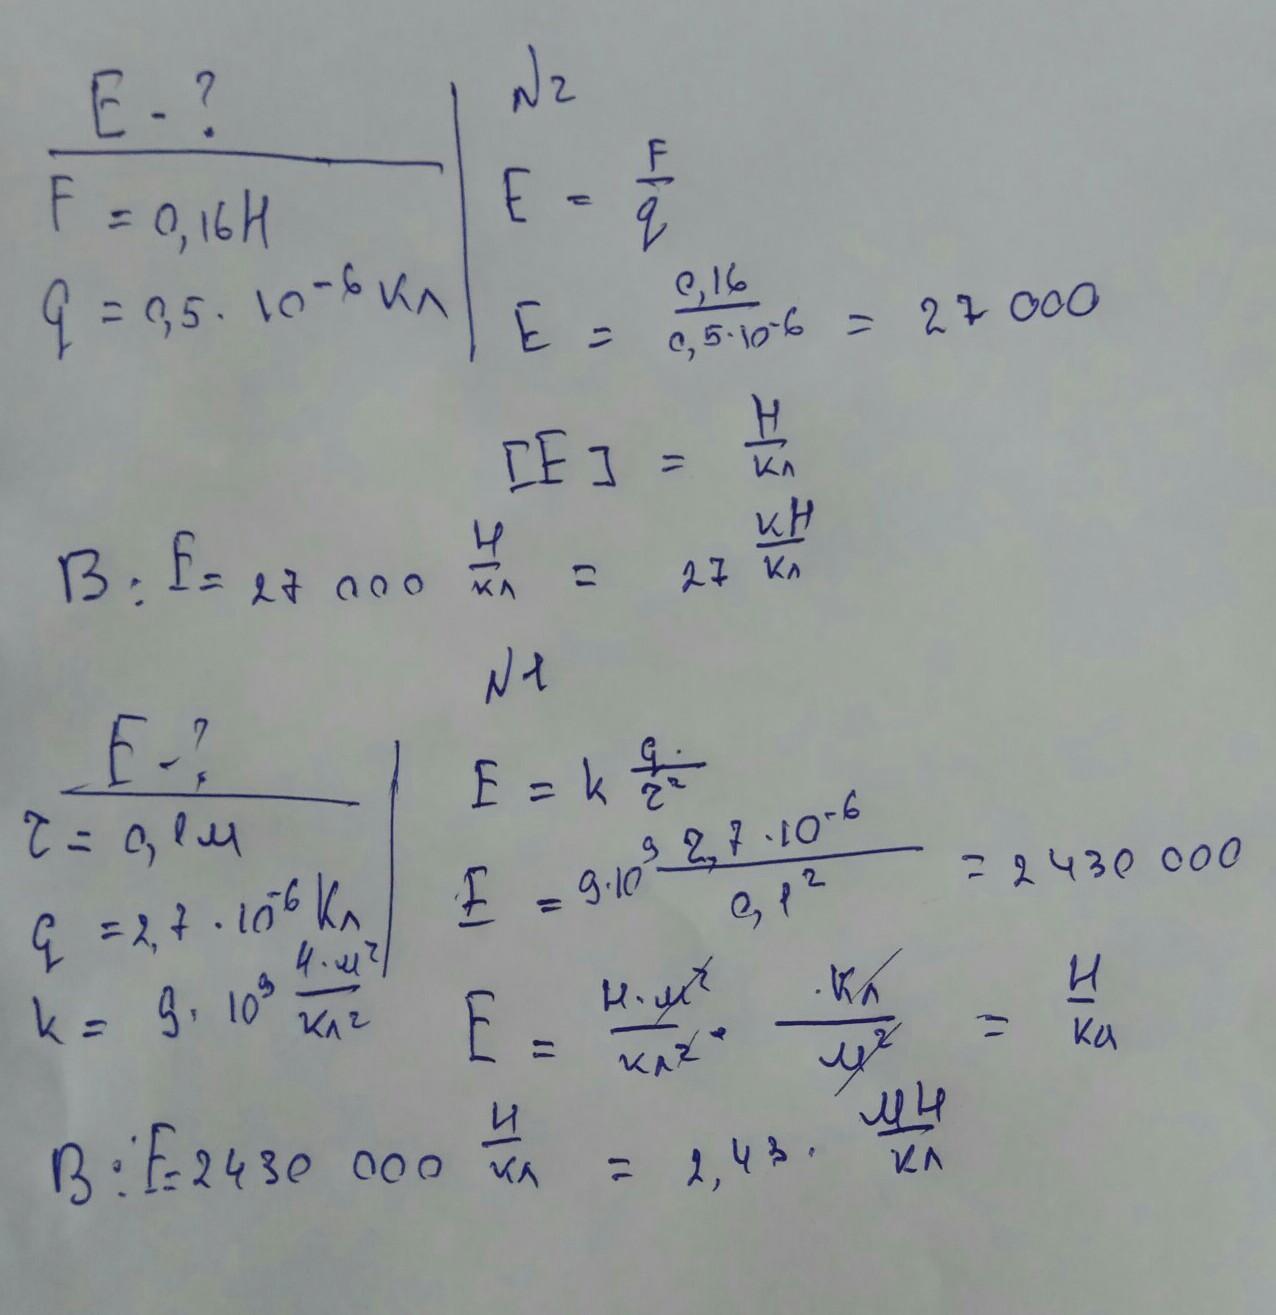 N2
E - ?
F = 0,16 Н
q = 0,5 · 10⁻⁶ Кл
E = F/q
E = 0,16/0,5·10⁻⁶ = 27 000
[E] = Н/Кл
В: E = 27 000 Н/Кл = 27 кН/Кл
N1
E - ?
r = 0,1 м
q = 2,7 · 10⁻⁶ Кл
k = 9 · 10⁹ Н·м²/Кл²
E = k q/r²
E = 9·10⁹ 2,7·10⁻⁶/0,1² = 2 430 000
E = Н·м²/Кл² · Кл/м² = Н/Кл
В: E = 2 430 000 Н/Кл = 2,43 · МН/Кл